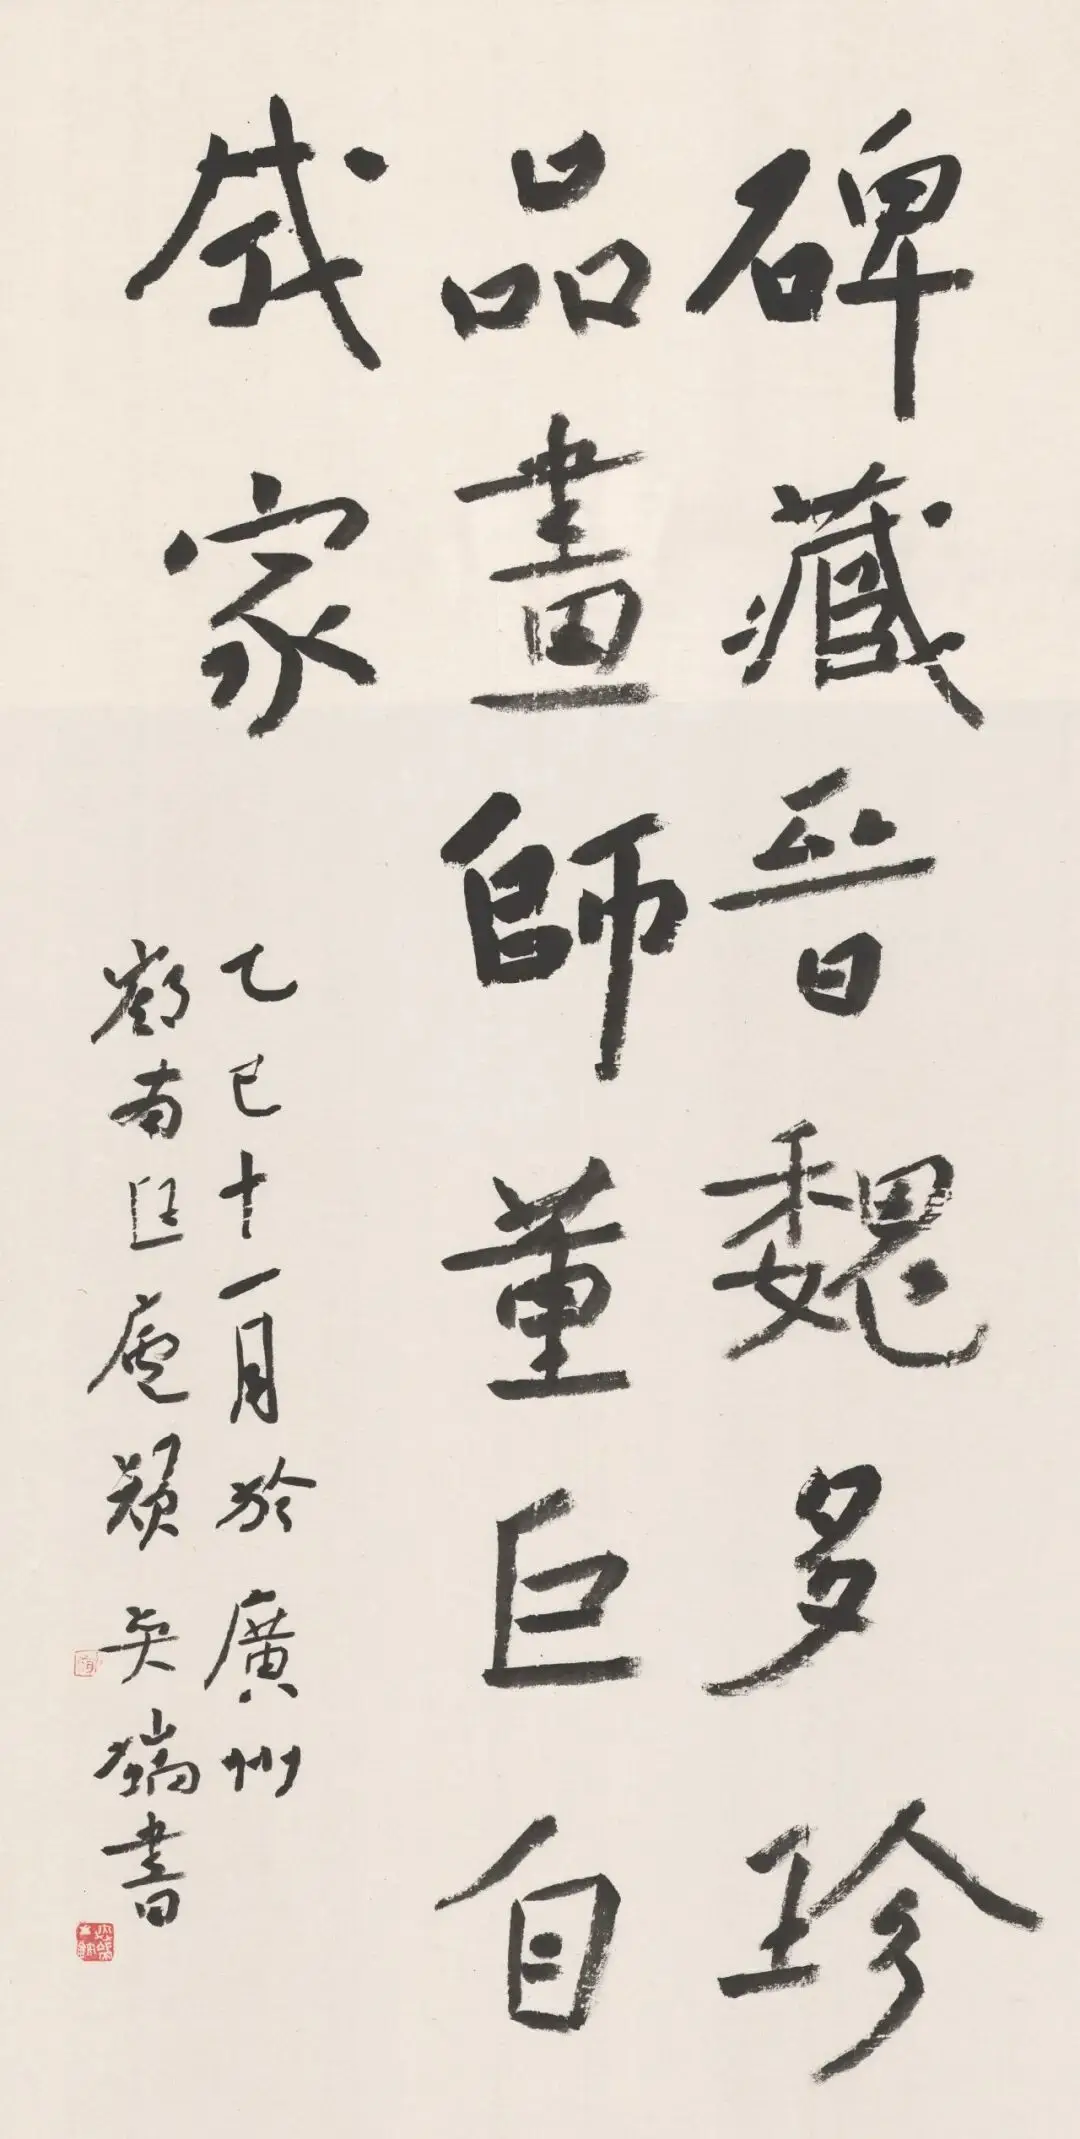 碑藏晉魏多珍
品畫師董巨自
成家
乙巳十一月於廣州
南匡廬書